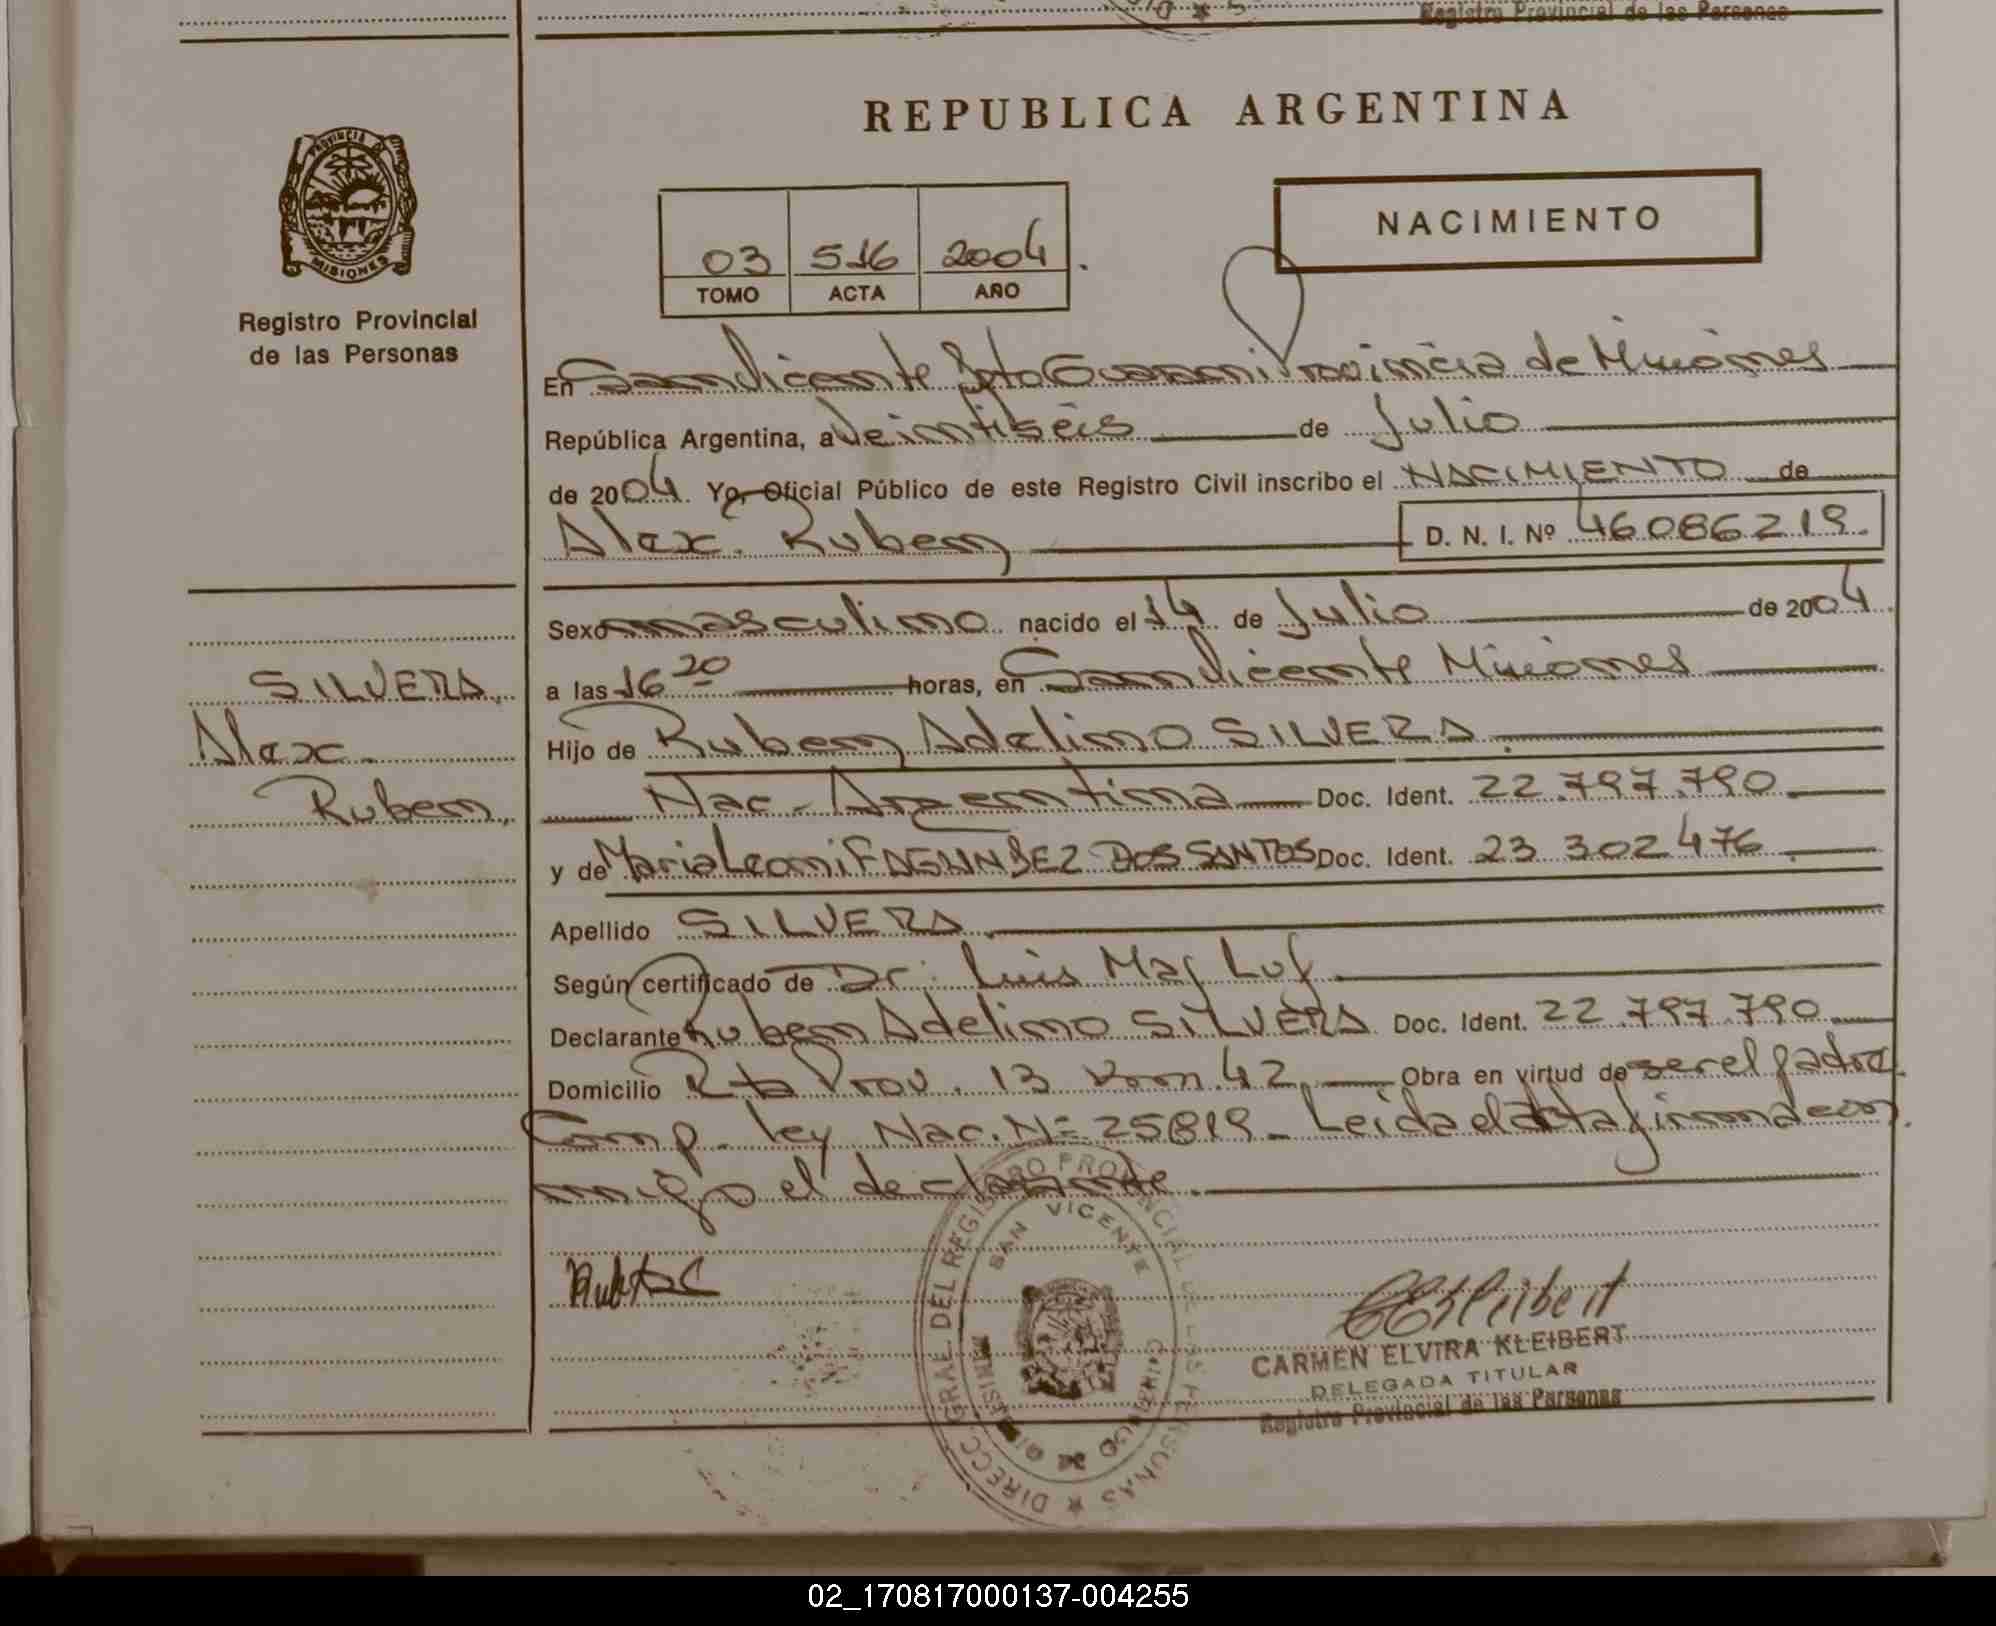 Registro Provincial de las Personas
REPUBLICA ARGENTINA
PROVINCIA DE
MISIONES
Registro Provincial
de las Personas
NACIMIENTO
03 516 2004.
TOMO ACTA AÑO
En San Vicente Dpto Guarani Provincia de Misiones
República Argentina, a Veintiséis de Julio
de 2004. Yo, Oficial Público de este Registro Civil inscribo el NACIMIENTO de
Alex Ruben D. N. I. Nº 46086219.
Sexo masculino nacido el 14 de Julio de 2004.
a las 16 20 horas, en San Vicente Misiones
Hijo de Ruben Adelino SILVERA.
Nac. Argentina Doc. Ident. 22.797.790
y de Maria Leoni FAGUNDEZ DOS SANTOS Doc. Ident. 23 302 476
Apellido SILVERA
Según certificado de Dr. Luis
Declarante Ruben Adelino SILVERA Doc. Ident. 22.797.790
Domicilio Rta Prov. 13 Km. 42 Obra en virtud de ser el padre.
Comp. ley Nac. Nº 25819 - Leida el acta firmande con
migo el declarante.
SILVERA,
Alex
Ruben,
DIRECC. GRAL. DEL REGISTRO PROVINCIAL DE LAS PERSONAS
SAN VICENTE
CARMEN ELVIRA KLEIBERT
DELEGADA TITULAR
Registro Provincial de las Personas
02_170817000137-004255